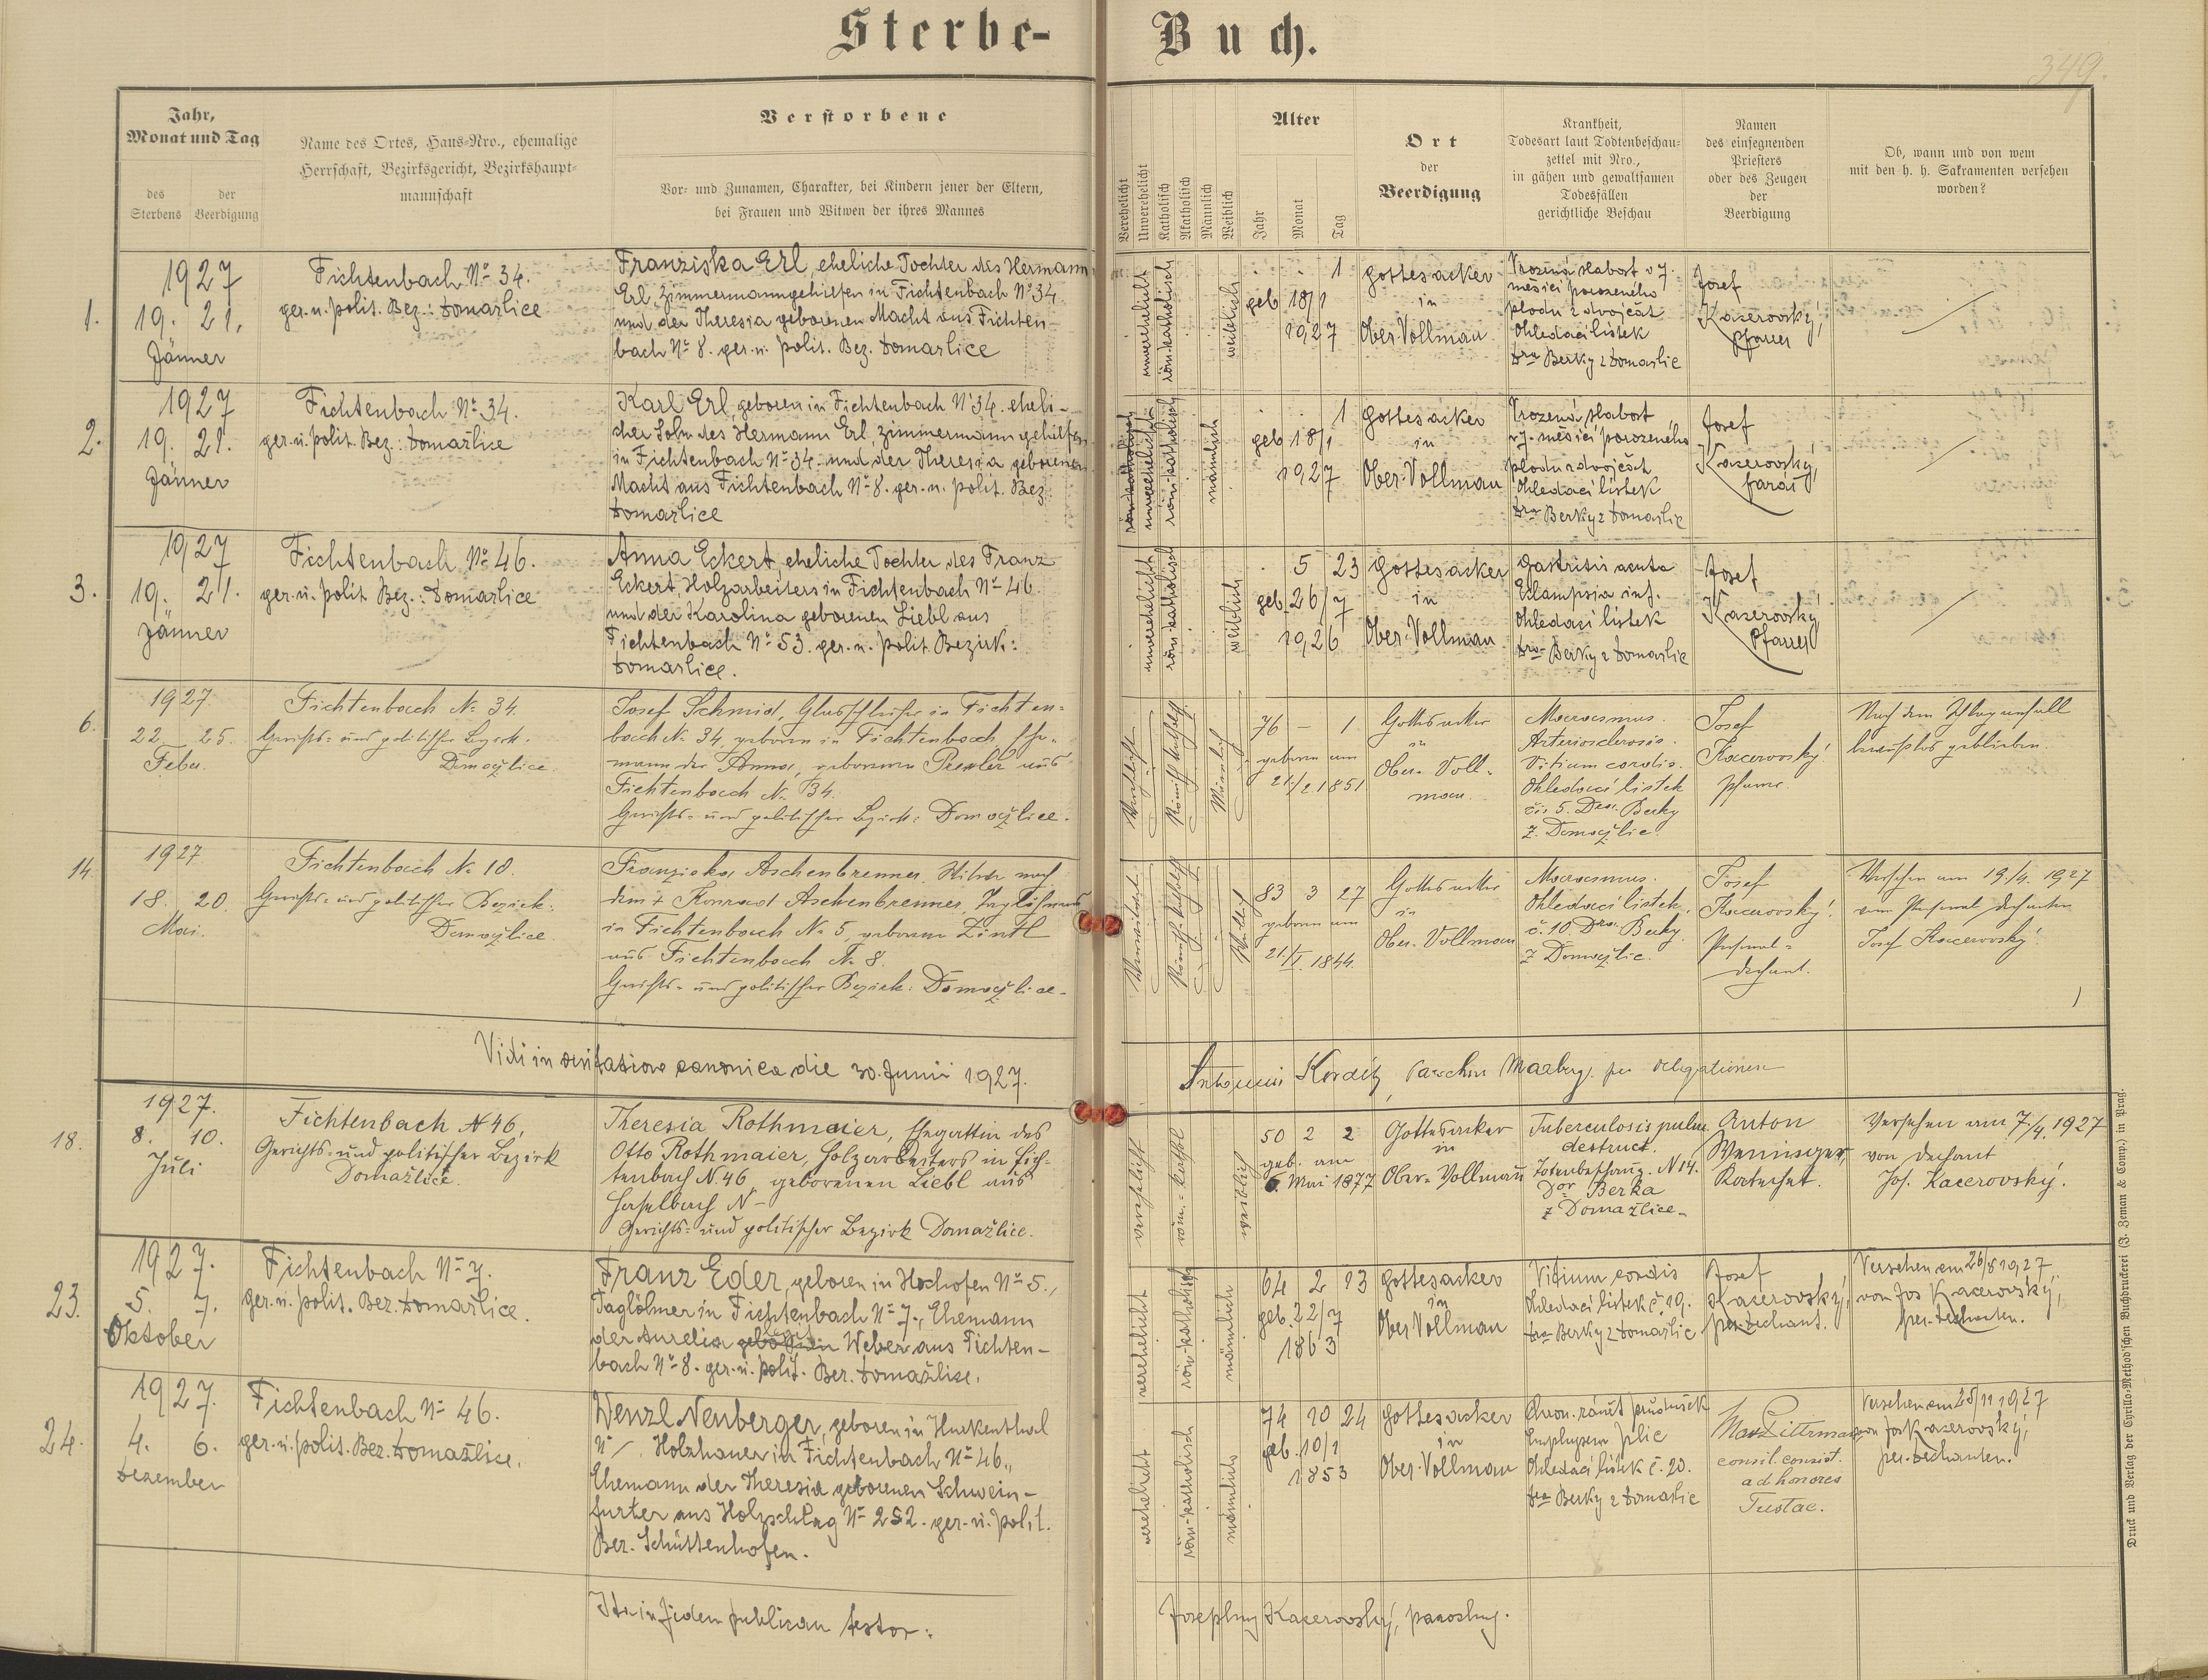 Sterbe-Buch.
349.
Jahr,
Monat und Tag
des Sterbens
der Beerdigung
Name des Ortes, Haus-Nro., ehemalige
Herrschaft, Bezirksgericht, Bezirkshaupt-
mannschaft
Verstorbene
Vor- und Zunamen, Charakter, bei Kindern jener der Eltern,
bei Frauen und Witwen der ihres Mannes
Verehelicht
Unverehelicht
Katholisch
Akatholisch
Männlich
Weiblich
Alter
Jahr
Monat
Tag
Ort
der
Beerdigung
Krankheit,
Todesart laut Todtenbeschau-
zettel mit Nro.,
in gähen und gewaltsamen
Todesfällen
gerichtliche Beschau
Namen
des einsegnenden
Priesters
oder des Zeugen
der
Beerdigung
Ob, wann und von wem
mit den h. h. Sakramenten versehen
worden?
1.
1927
19. 21.
Jänner
Fichtenbach No 34.
ger. u. polit. Bez.: Domažlice
Franziska Erl, eheliche Tochter des Hermann
Erl, Zimmermanngehilfen in Fichtenbach No 34
und der Theresia geborenen Macht aus Fichten-
bach No 8. ger. u. polit. Bez. Domažlice
unverehelicht
röm-katholisch
weiblich
1
geb. 18/1
1927
Gottesacker
in
Ober-Vollmau
Vrozená slabost v 7.
měsíci porozeného
plodu z dvojčat
Ohledací lístek
Dra Berky z Domažlic
Josef
Kacerovský,
Pfarrer
2.
1927
19. 21.
Jänner
Fichtenbach No 34.
ger. u. polit. Bez.: Domažlice
Karl Erl, geboren in Fichtenbach No 34. eheli-
cher Sohn des Hermann Erl, Zimmermanngehilfen
in Fichtenbach No 34. und der Theresia geborenen
Macht aus Fichtenbach No 8. ger. u. polit. Bez.
Domažlice
unverehelicht
röm-katholisch
männlich
1
geb. 18/1
1927
Gottesacker
in
Ober-Vollmau
Vrozená slabost
v 7. měsíci porozeného
plodu z dvojčat
Ohledací lístek
Dra Berky z Domažlic
Josef
Kacerovský,
farář
3.
1927
19. 21.
Jänner
Fichtenbach No 46.
ger. u. polit. Bez.: Domažlice
Anna Eckert, eheliche Tochter des Franz
Eckert, Holzarbeiters in Fichtenbach No 46
und der Karolina geborenen Liebl aus
Fichtenbach No 53. ger. u. polit. Bezirk:
Domažlice.
unverehelicht
röm-katholisch
weiblich
5 23
geb. 26/7
1926
Gottesacker
in
Ober-Vollmau
Gastritis acuta
Eklampsia inf.
Ohledací lístek
Dra Berky z Domažlic
Josef
Kacerovský
Pfarrer
6.
1927.
22. 25.
Feber.
Fichtenbach No 34.
Gerichts- und politischer Bezirk:
Domažlice.
Josef Schmid, Glasschleifer in Fichten-
bach No 34, geboren in Fichtenbach, Ehe-
mann der Anna, geborenen aus
Fichtenbach No 34.
Gerichts- und politischer Bezirk: Domažlice.
Verehelicht
Römisch-katholisch
Männlich
76 – 1
geboren am
21./2. 1851
Gottesacker
in
Ober-Voll-
mau.
Marasmus.
Arteriosclerosis.
Vitium cordis.
Ohledací lístek
čís 5. Dra. Berky
z. Domažlic.
Josef
Kacerovský,
Pfarrer.
Nach dem Schlaganfall
bewußtlos geblieben.
14.
1927
18. 20.
Mai.
Fichtenbach No 10.
Gerichts- und politischer Bezirk:
Domažlice.
Franziska Aschenbrenner, Witwe nach
dem + Konrad Aschenbrenner, Taglöhners
in Fichtenbach No 5, geborene Zintl
aus Fichtenbach No 8.
Gerichts- und politischer Bezirk: Domažlice.
Verwitwet
Römisch-katholisch
Weiblich
83 3 27
geboren am
21./I. 1844.
Gottesacker
in
Ober-Vollmau
Marasmus.
Ohledací lístek,
č. 10. Dra. Berky.
z Domažlic.
Josef
Kacerovský.
Personal-
dechant.
Versehen am 19/4. 1927
vom Personal dechanten
Josef Kacerovský.
Vidi in visitatione canonica die 30. Junii 1927.
Antonius Kordík, Parochus per delegationem
18.
1927.
8. 10.
Juli
Fichtenbach N 46,
Gerichts- und politischer Bezirk
Domažlice.
Theresia Rothmaier, Ehegattin des
Otto Rothmaier, Holzarbeiters in Fich-
tenbach N. 46, geborenen Liebl aus
Haselbach N –
Gerichts- und politischer Bezirk Domažlice.
verehelicht
röm.-kathol
weiblich
50 2 2
geb. am
6. Mai 1877
Gottesacker
in
Ober-Vollmau
Tuberculosis pulm.
destruct.
Totenbeschauz. N 14.
Dor Berka
z Domažlice.
Anton
Weninger,
Katechet.
Versehen am 7/4. 1927
von Dechant
Jos. Kacerovský.
23.
1927.
5. 7.
Oktober
Fichtenbach No 7.
ger. u. polit. Bez. Domažlice.
Franz Eder, geboren in Hochofen No 5.,
Taglöhner in Fichtenbach No 7., Ehemann
der Aurelia geborenen Weber aus Fichten-
bach No 8. ger. u. polit. Bez. Domažlice.
verehelicht
röm-katholisch
männlich
64 2 13
geb. 22/7
1863
Gottesacker
in
Ober Vollmau
Vitium cordis
Ohledací lístek č. 19.
Dra Berky z Domažlic
Josef
Kacerovský,
per. Dechant.
Versehen am 26/8 1927
von Jos Kacerovský,
per. Dechanten.
24.
1927.
4. 6.
Dezember
Fichtenbach No 46.
ger. u. polit. Bez. Domažlice.
Wenzl Neuberger, geboren in Hurkenthal
No –, Holzhauer in Fichtenbach No 46.,
Ehemann der Theresia geborenen Schwein-
furter aus Holzschlag No 252. ger. u. polit.
Bez. Schüttenhofen.
verehelicht
röm-katholisch
männlich
74 10 24
geb. 10/1
1853
Gottesacker
in
Ober-Vollmau
Chron. zánět průdušek
Emphysem plic
Ohledací lístek č. 20.
Dra Berky z Domažlic
Max Dittrmann
consil. consist.
ad honores
Tustac.
Versehen am 28/11 1927
von Jos Kacerovský,
per. Dechanten.
Ita in fidem publicam testor:
Josephus Kacerovský, parochus.
Druck und Verlag der Cyrillo-Method'schen Buchdruckerei (J. Zeman & Comp.) in Prag.